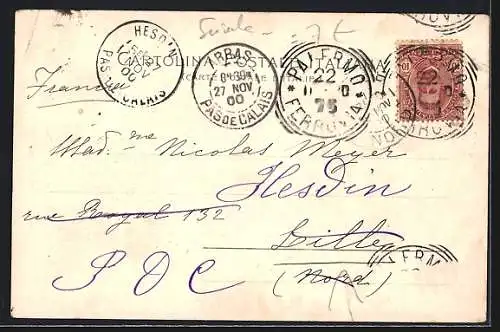 HESDIN
NOV 00
PAS DE CALAIS
ARRAS
27 NOV 00
PAS DE CALAIS
PALERMO
22
75
FERROVIA
CARTOLINA POSTALE ITALIANA
France
Mad.me Nicolas Meyer
Hesdin
rue Royal 132
Lille
P D C (Nord)
LERM